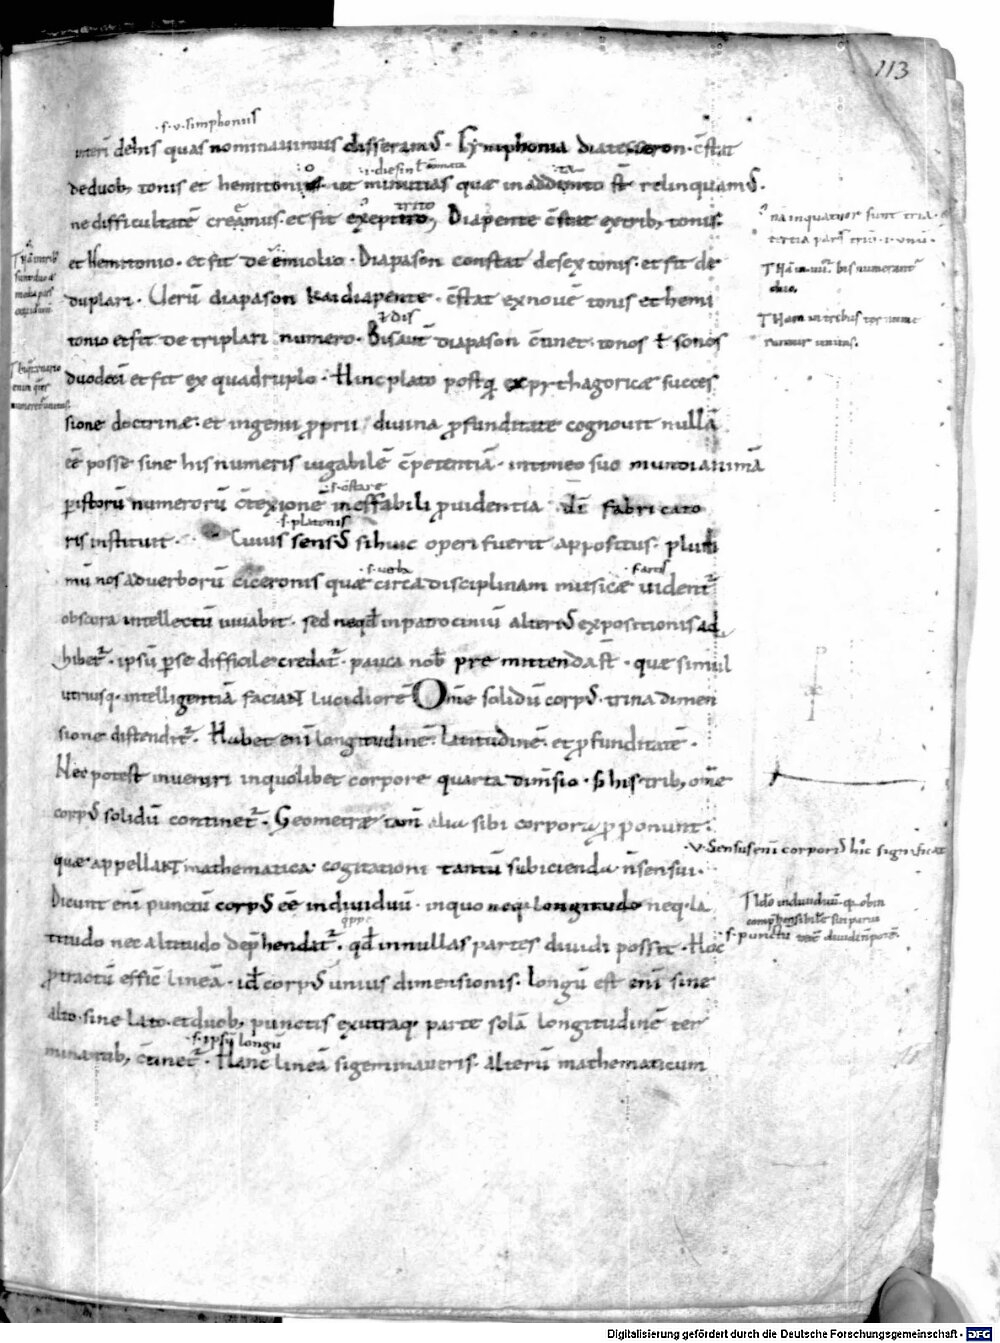 113
.s. v. simphoniis
interī de his quas nominauimus disseram᷒. Symphonia diatesseron. c̄stat
.i. diesin ł cōmata
deduob; tonis et hemitonio. ut minutias quae in additamto st̄ relinquam᷒.
trito
ne difficultatē creamus. et fit ex epitrito, Diapente c̄stat ex trib; tonis.
et hemitonio. et fit de emiolio. Diapason constat de sex tonis. et fit de
duplari. Uerū diapason kai diapente. c̄stat ex nouē tonis et hemi
ł dis
tonio et fit de triplari numero. Bisaut̄ diapason c̄tinet tonos ł sonos
duodeci et fit ex quadruplo. Hinc plato postq̄ ex pythagoricae succes
sione doctrinae. et ingenii p̄prii diuina p̄funditate cognouit nullā
eē posse sine his numeris iugabilē c̄petentiā. in timeo suo mundi animā
p istorū numerorū c̄texionē ineffabili p̄uidentia dī fabricato
.s. platonis
ris instituit. Cuius sens᷒ si huic operi fuerit appositus. pluri
.s. uerba
mū nos ad uerborū ciceronis quae circa disciplinam musicae uident᷑
obscura intellectū iuuabit. sed ne qd̄ in patrociniū alteri᷒ expositionis ad
hibet᷑. ipsū p se difficile credat᷑. pauca nob̄ premittenda st̄. quae simul
utriusq. intelligentiā faciant lucidiorē Om̄e solidū corp᷒. trina dimen
sione distendit᷑. Habet enī longitudinē. latitudinē. et p̄funditatē.
Nec potest inueniri in quolibet corpore quarta dim̄sio. s; his trib; om̄e
corp᷒ solidū continet᷑. Geometrae tam̄ alia sibi corpora p̄ponunt.
quae appellant mathematica. cogitationi tantū subicienda n̄ sensui.
Dicunt enī punctū corp᷒ eē indiuiduū. in quo neq. longitudo neq. la
titudo nec altitudo dep̄hendat᷑. qd̄ in nullas partes diuidi possit. Hoc
p̄tractū effic̄ lineā. id̄ corp᷒ unius dimensionis. longū est enī sine
alto. sine lato. et duob; punctis ex utraq. parte solā longitudinē ter
.s. ipsū longū
minatib; c̄tinet᷑. Hanc lineā si geminaueris. alterū mathematicum
na in quatuor sunt tria.
Nam in tribus ter nume
ratur unitas.
.v. Sensus enī corporis hic significat
Digitalisierung gefördert durch die Deutsche Forschungsgemeinschaft - DFG